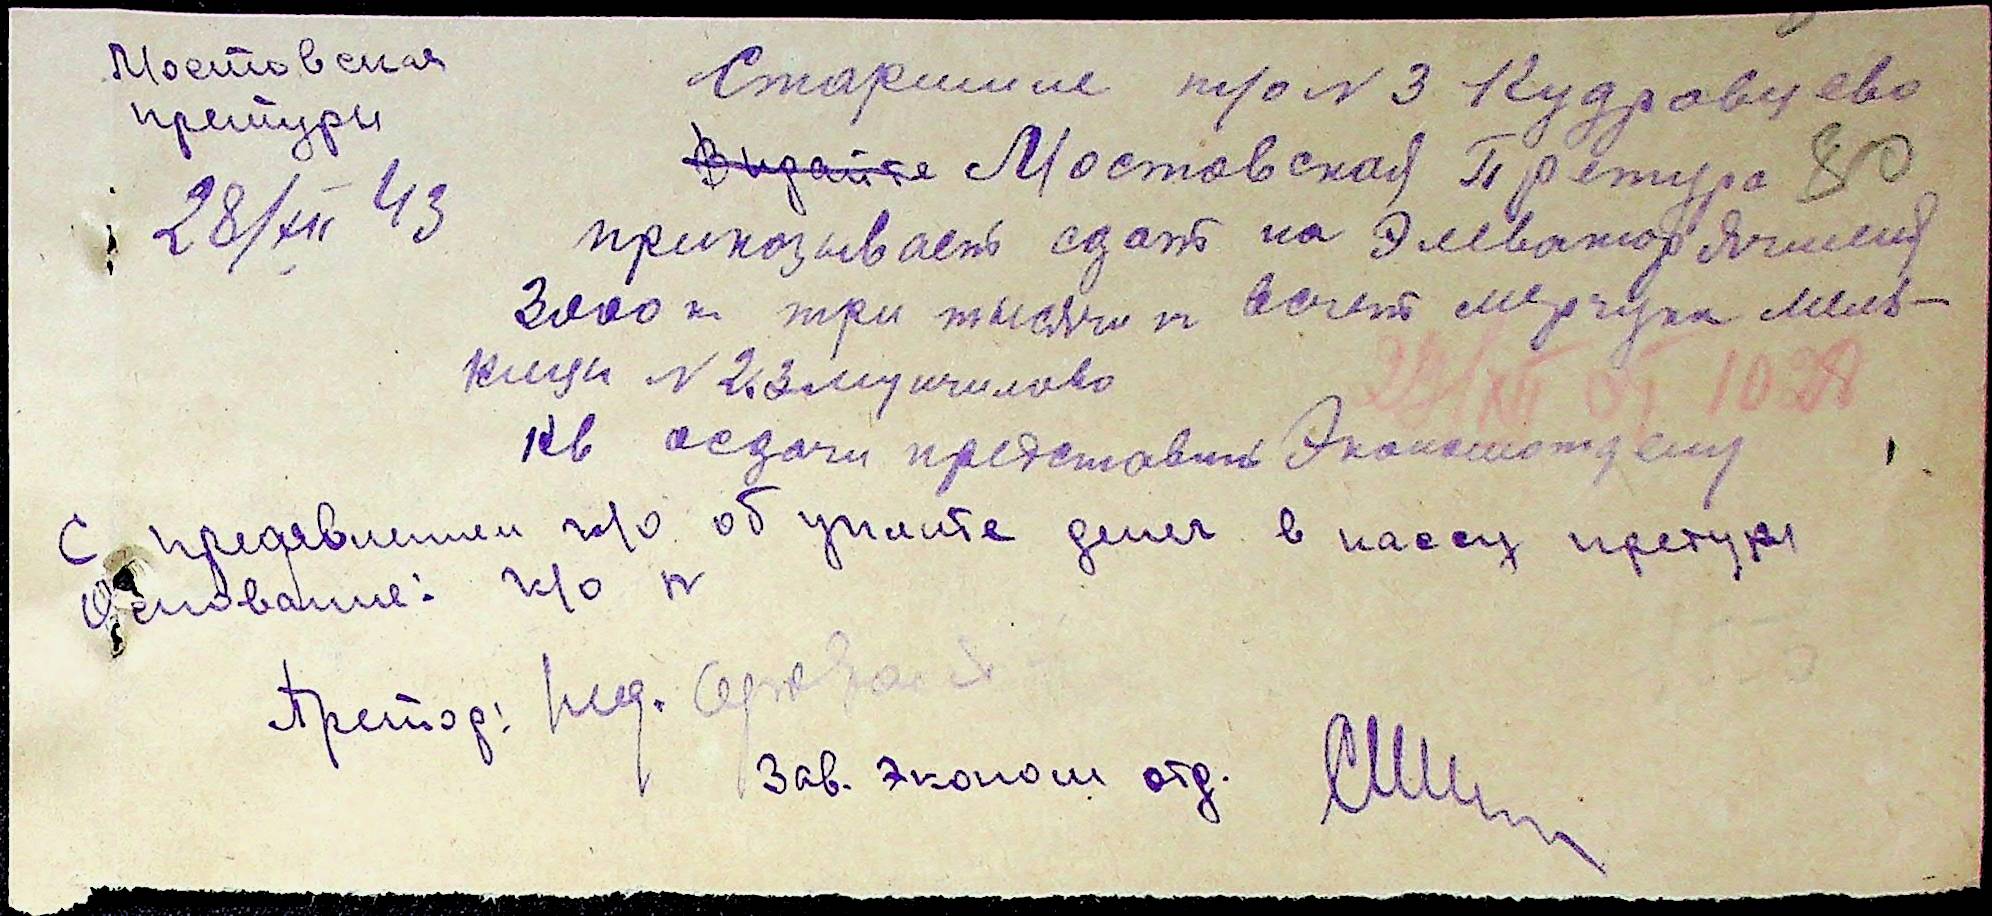 Мостовская
претуры
28/XII 43
Старшине т/о N 3 Кудравцево
Видайте Мостовская Претура 80
приказывает сдать на Элеватор Ячменя
3000 к три тысячи к всчет мерчука мель-
ницы N 2
27/XII 1028
Кв осдачи представить Экономотделу
С предявлением к/о об уплате денег в кассу претуры
Основание: к/о N
Претор:
Зав. Эконом отд.